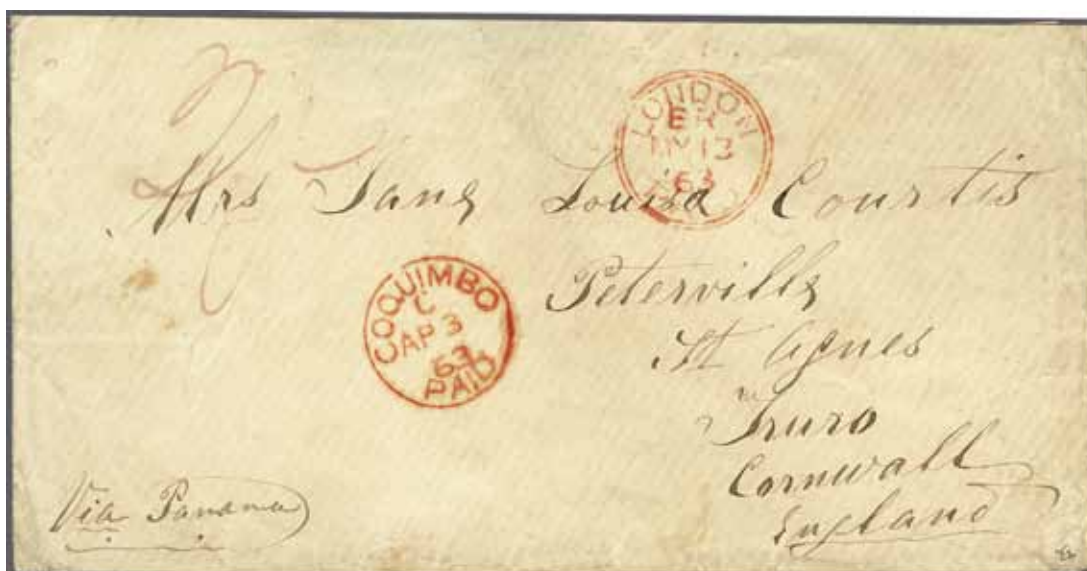 LONDON
EK
MY 13
63
Mrs Jane Louiza Courtis
COQUIMBO
C
AP 3
63
PAID
Peterville
St Agnes
Truro
Cornwall
England
Via Panama